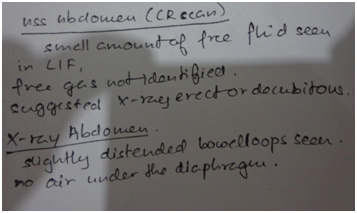 uss abdomen (CR scan)
small amount of free fluid seen
in LIF,
free gas not identified.
suggested x-ray erect or decubitous.
X-ray Abdomen.
slightly distended bowelloops seen.
no air under the diaphragm.